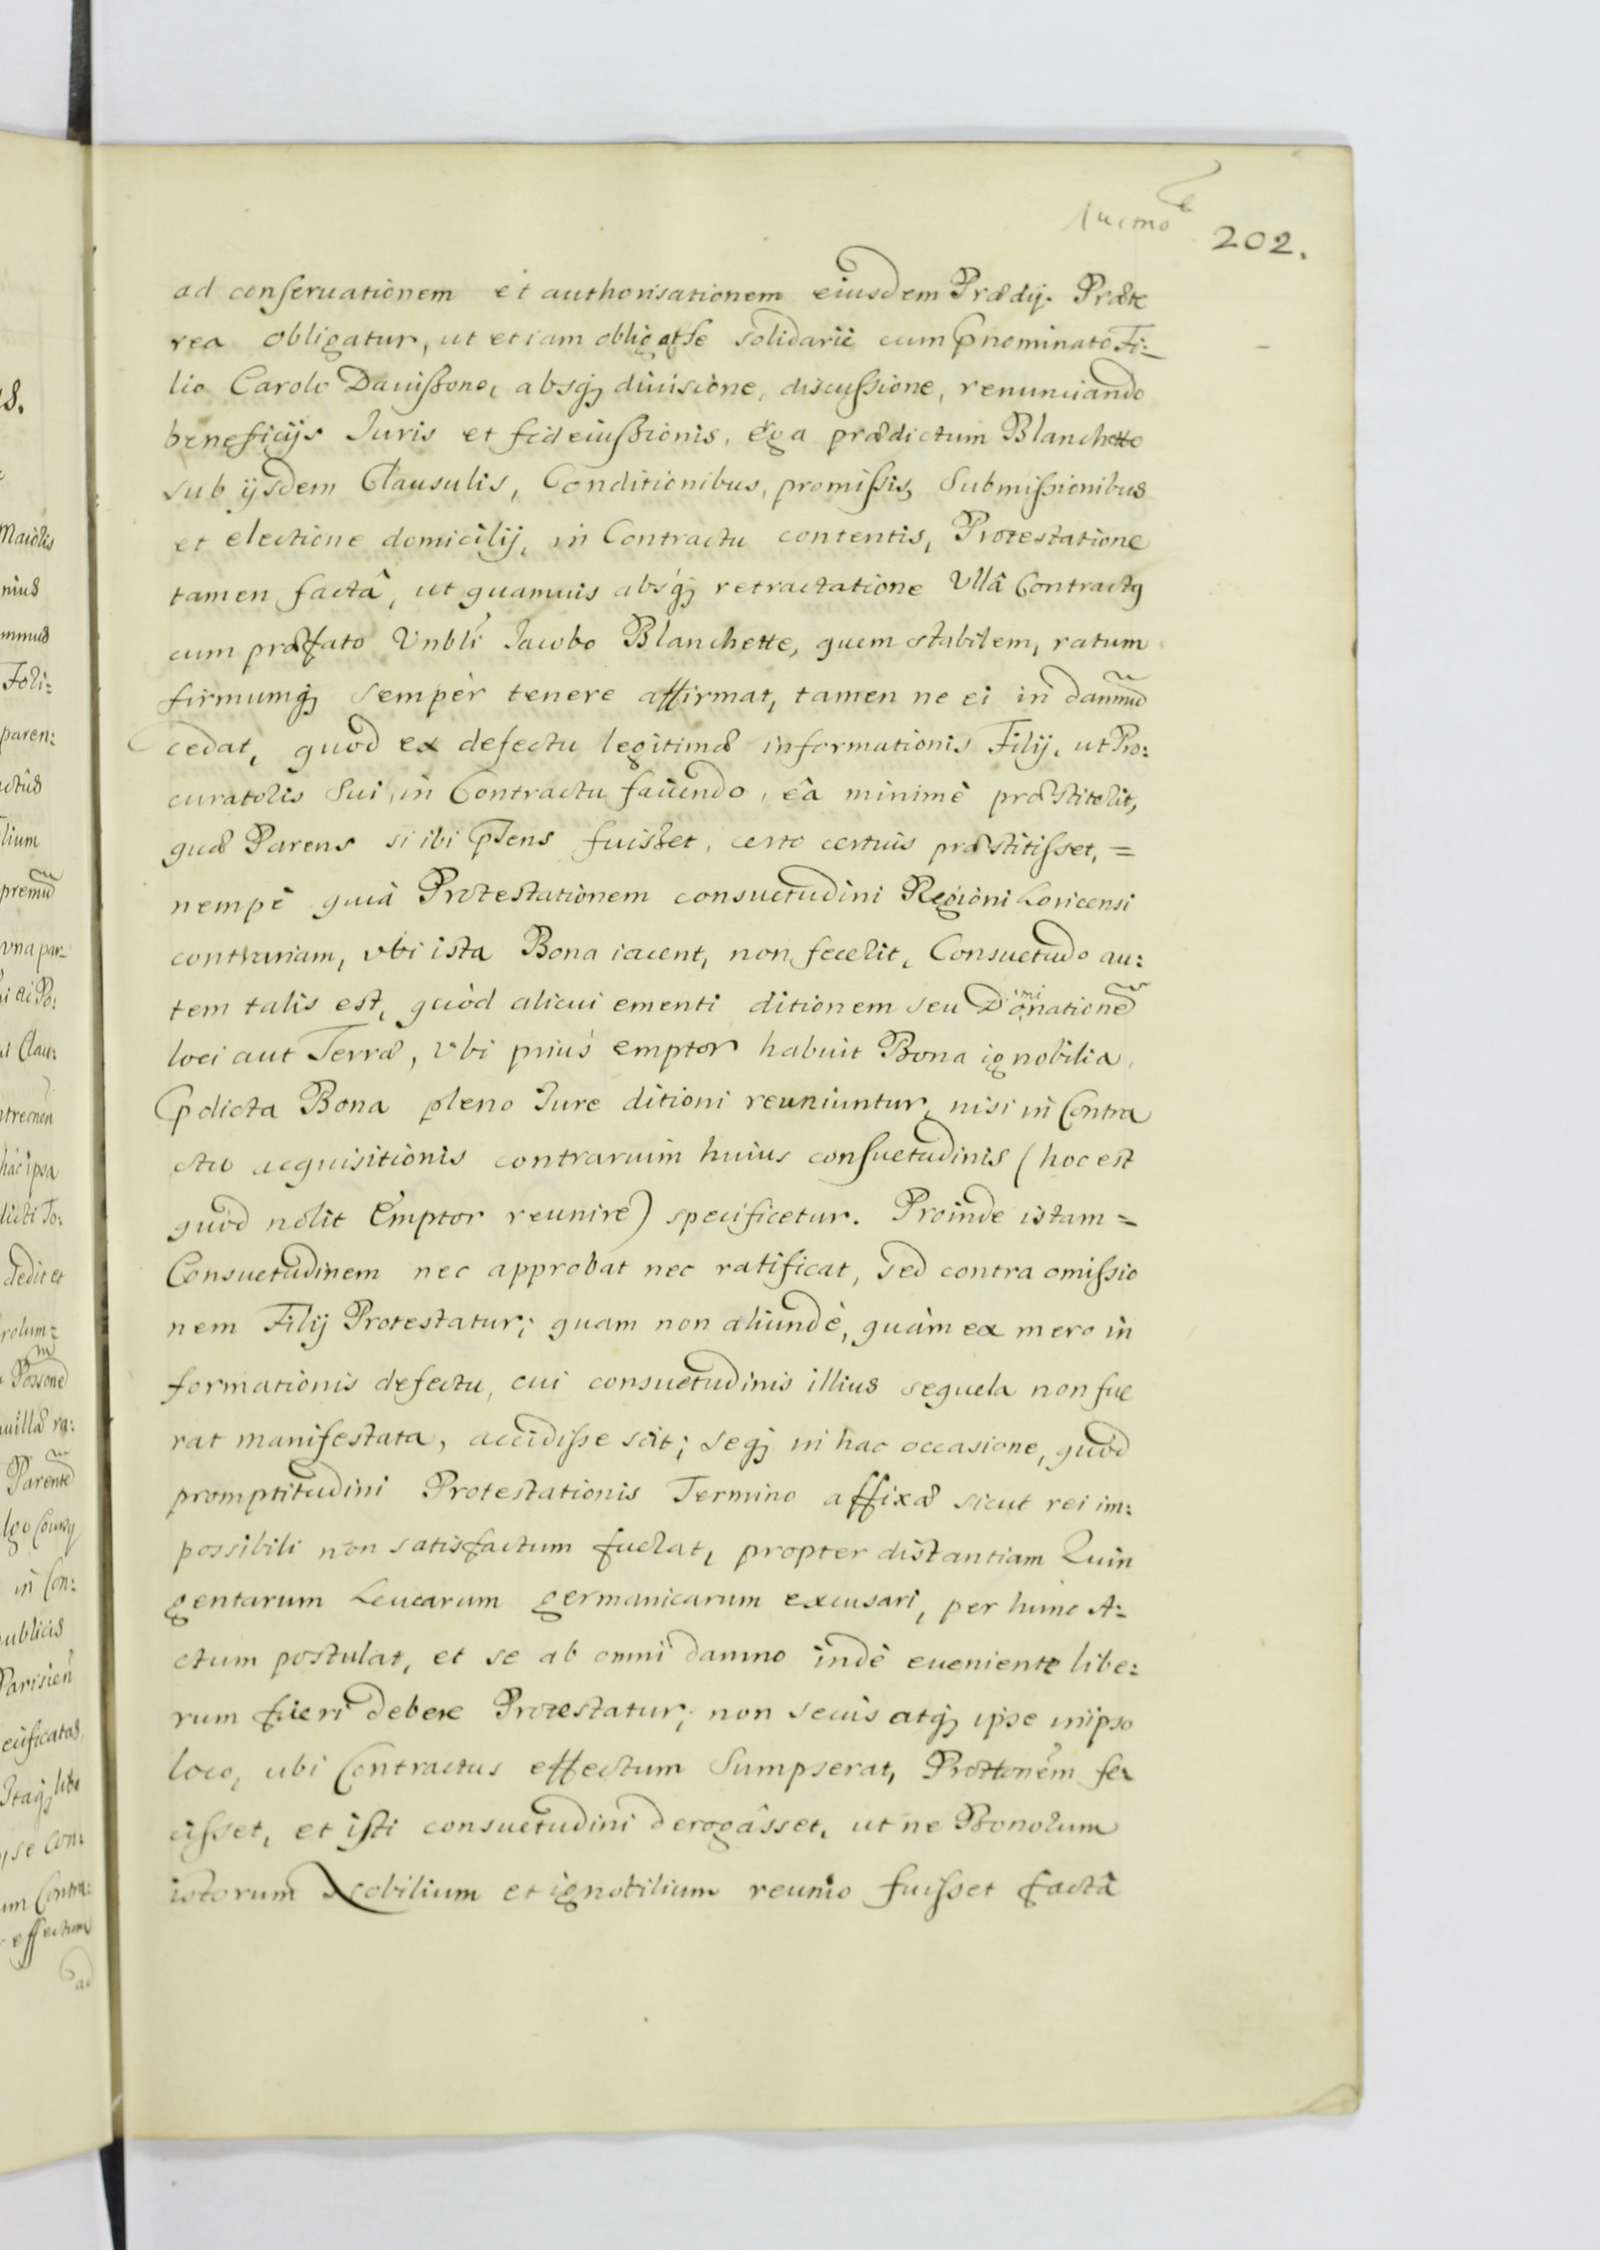 202.
ad conseruationem et authorisationem eiusdem Prædij. Præte
rea obligatur, ut etiam obligat se solidariè cum pnominato Fi:
lio Carolo Dauissono, absq diuisione, discussione, renunciando
beneficijs Iuris et fideiussionis, erga prædictum Blanchette
sub ijsdem Clausulis, Conditionibus, promissis, Submissionibus
et electione domicilij, in Contractu contentis, Protestatione
tamen factâ, ut quamuis absq retractatione Vllâ Contractq
cum præfato Vnbli Iacobo Blanchette, quem stabilem, ratum
firmumq semper tenere affirmat, tamen ne ei in damnũ
cedat, quod ex defectu legitimæ informationis Filij, ut Pro:
curatoris Sui, in Contractu faciendo, ea minimè præstiterit,
quæ Parens si ibi pñens fuisset, certo certius præstitisset, =
nempè quià Protestationem consuetudini Regioni Loricensi
contrariam, vbi ista Bona iacent, non fecerit, Consuetudo au:
tem talis est, quòd alicui ementi ditionem seu Dominatione
loci aut Terræ, Vbi priùs emptor habuit Bona ignobilia,
pdicta Bona pleno Iure ditioni reuniuntur, nisi in Contra
ctu acquisitionis contrarium huius consuetudinis (hoc est
quòd nolit Emptor reunire) specificetur. Proinde istam =
Consuetudinem nec approbat nec ratificat, sed contra omissio
nem Filij Protestatur; quam non aliundè, quàm ex mero in
formationis defectu, cui consuetudinis illius sequela non fue
rat manifestata, accidisse scit; seq in hac occasione, quòd
promptitudini Protestationis Termino affixæ sicut rei im:
possibili non satisfactum fuerat, propter distantiam Quin
gentarum Leucarum germanicarum excusari, per hunc A:
ctum postulat, et se ab omni damno indè eueniente libe:
rum fieri debere Protestatur; non secùs atq ipse in ipso
loco, ubi Contractus effectum Sumpserat, Prottonem fe
cisset, et isti consuetudini derogâsset, ut ne Bonorum
istorum Nobilium et ignobilium reunio fuisset facta